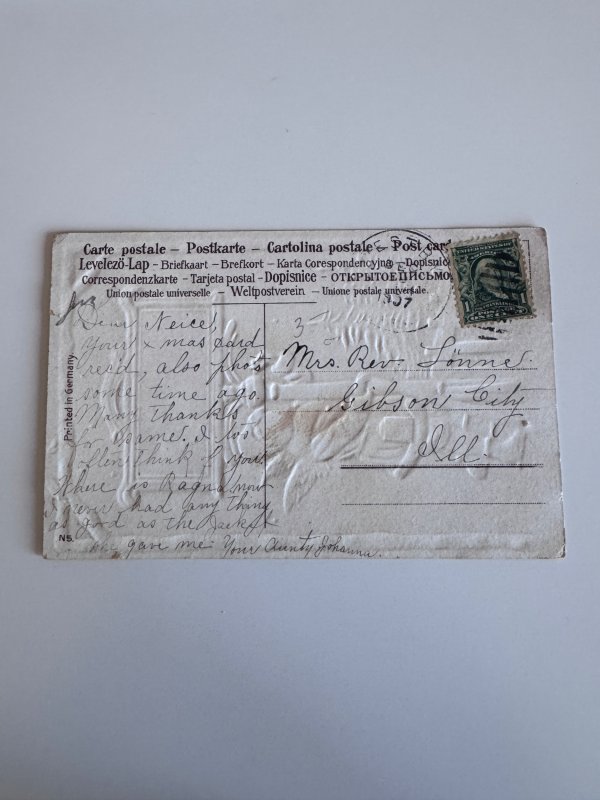 Carte postale – Postkarte – Cartolina postale – Post card
Levelező-Lap – Briefkaart – Brefkort – Karta Corespondencyjna – Dopisnice
Correspondenzkarte – Tarjeta postal – Dopisnice – ОТКРЫТОЕ ПИСЬМО
Union postale universelle – Weltpostverein – Unione postale universale.
1907
UNITED STATES OF
FRANKLIN
Printed in Germany.
NS.
Dear Neice!
Your x mas card
recd, also photo
some time ago.
Many thanks
for same. I
often think of you.
Where is Ragna now
I never had any thing
as good as the
she gave me. Your Aunty Johanna.
3
Mrs. Rev. Lönne.
Gibson City
Ill.